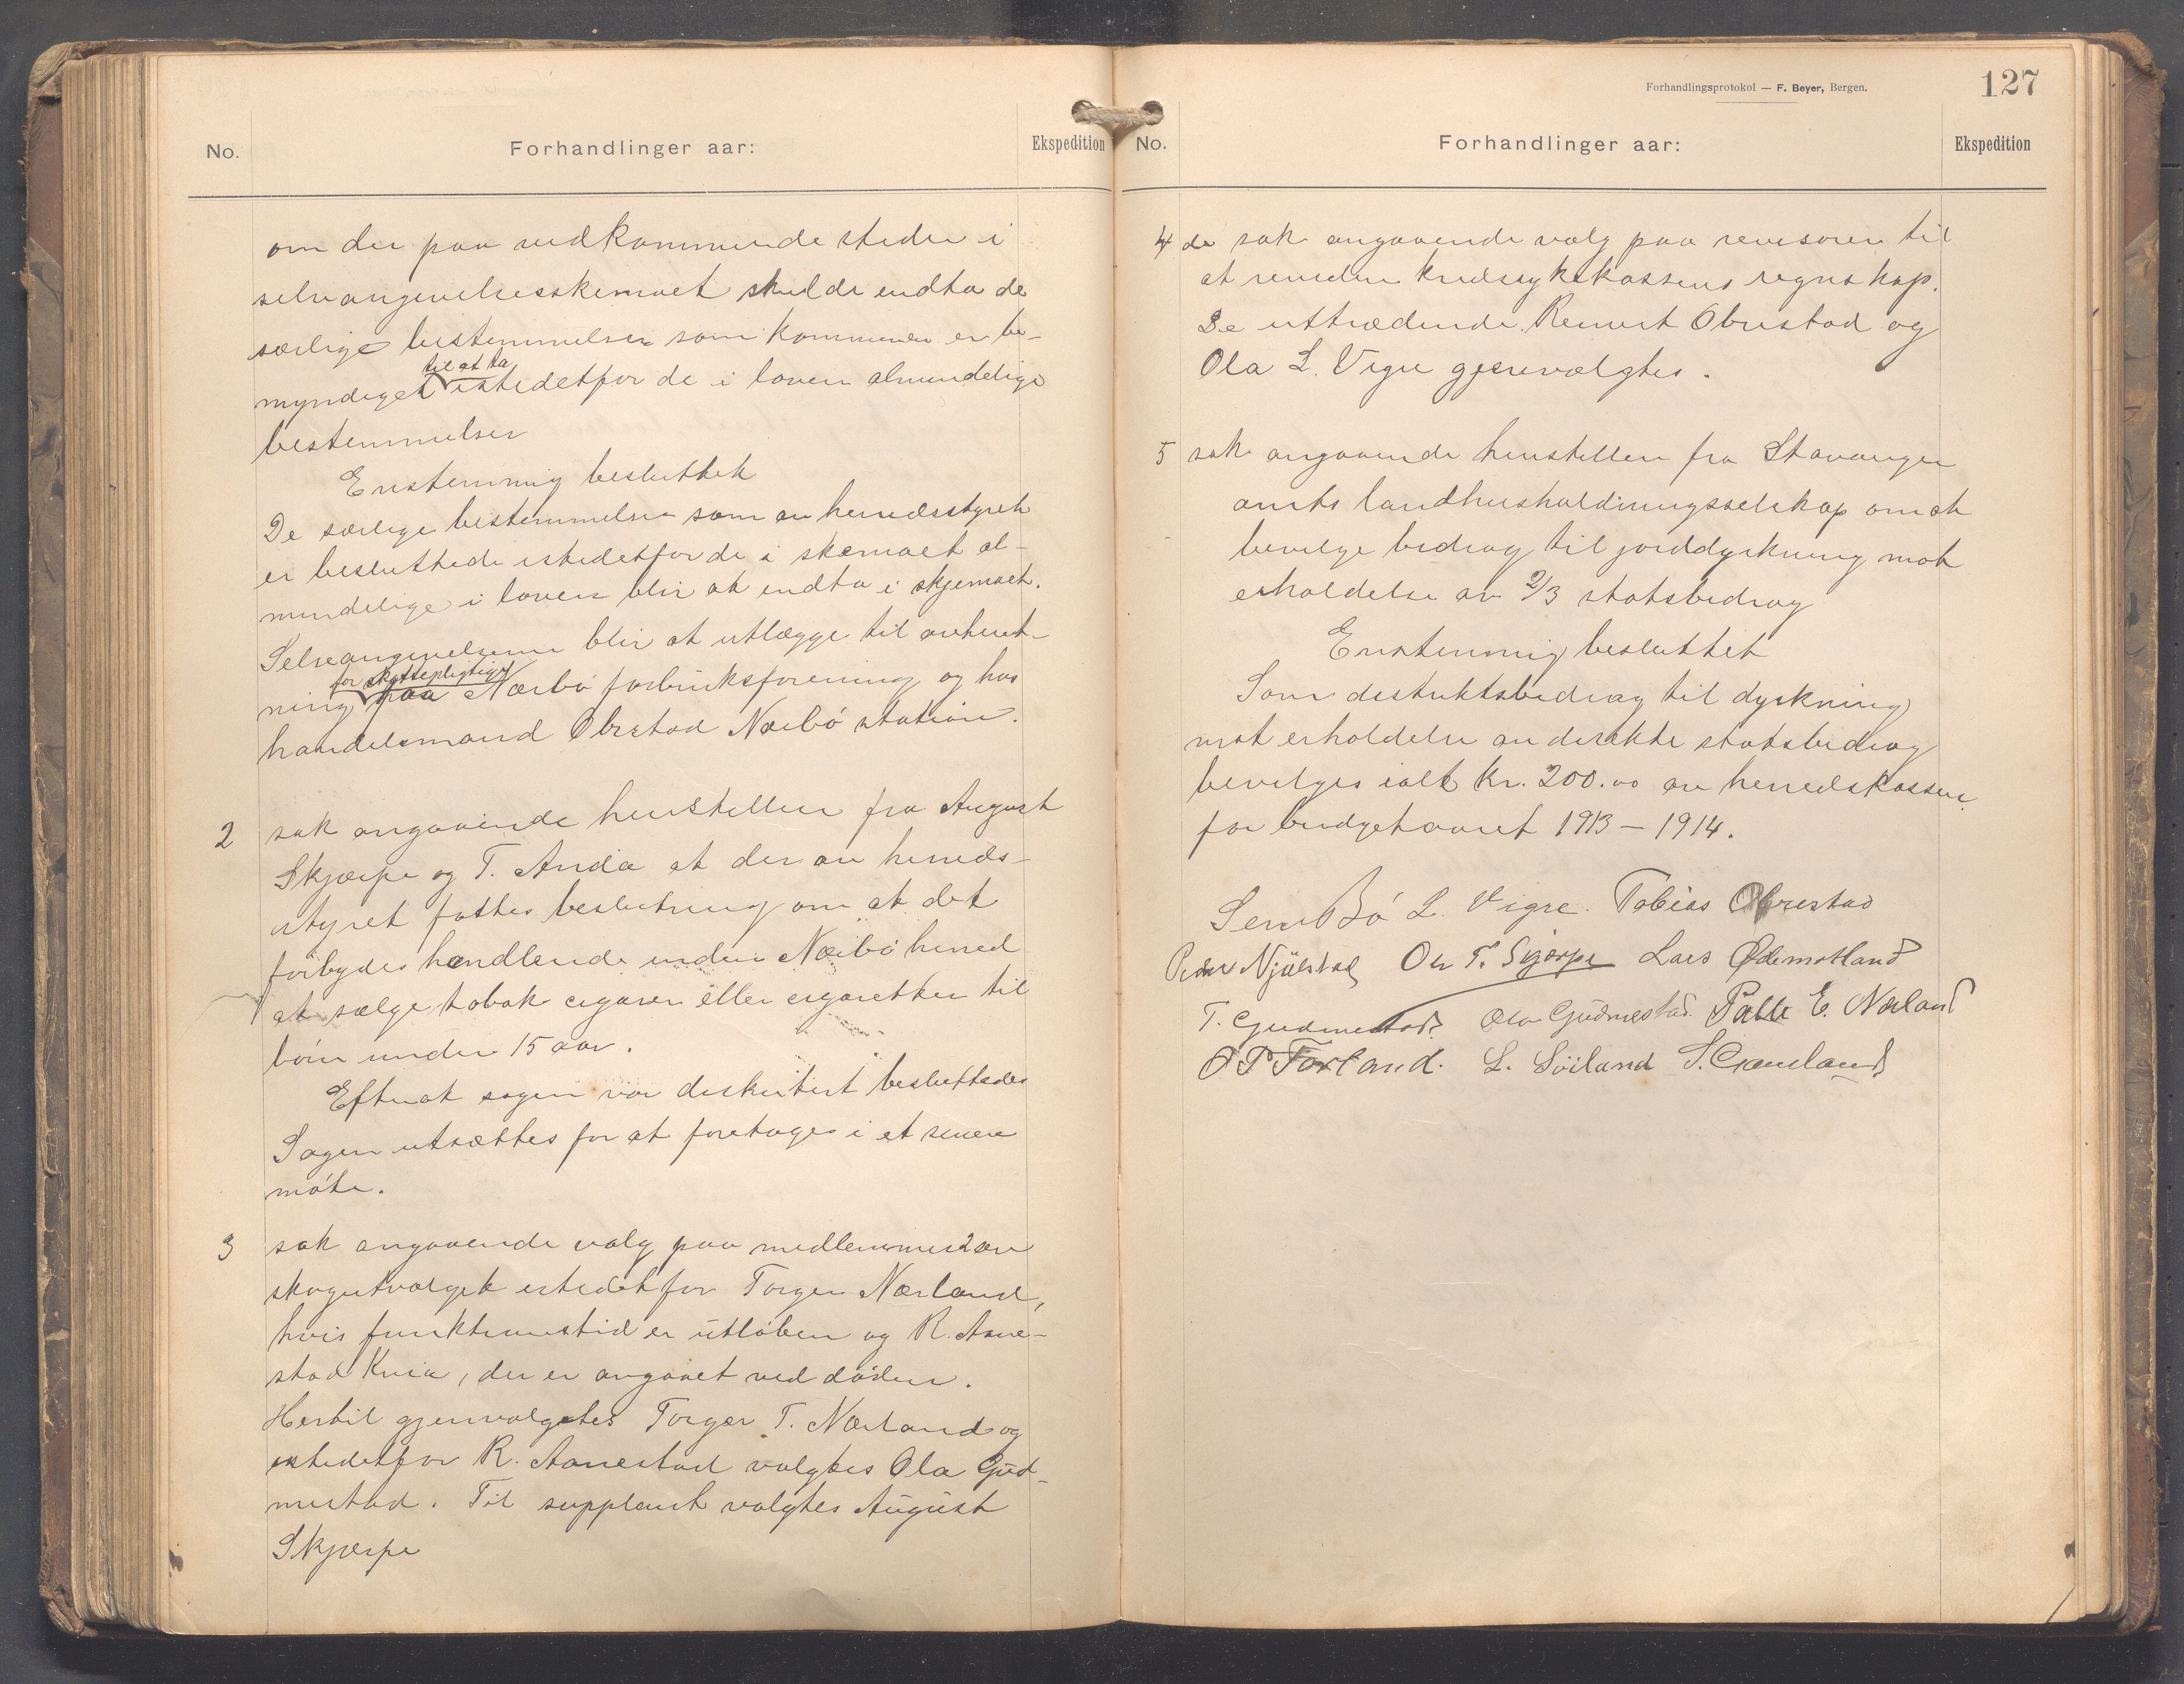 No.
Forhandlinger aar:
Ekspedition
om der paa vedkommende steder i
selvangivelsesskemaet skulde indta de
særlige bestemmelser som kommunen er be-
til at ta
myndiget istedetfor de i loven almindelige
bestemmelser
Enstemmig besluttet
De særlige bestemmelser som av herredsstyret
er besluttede istedetfor de i skemaet al-
mindelige i loven blir at indta i skjemaet.
Selvangivelserne blir at utlægge til avhent-
for skattepligtige
ning paa Nærbø forbruksforening og hos
handelsmand Obrestad Nærbø station.
2 sak angaaende henstillen fra August
Skjærpe og T. Anda at der av herreds-
styret fattes beslutning om at det
forbydes handlende inden Nærbø herred
at sælge tobak cigarer eller cigaretter til
børn under 15 aar.
Efterat sagen var diskutert besluttedes
Sagen utsættes for at foretages i et senere
møte.
3 sak angaaende valg paa medlemmer av
skogutvalget istedetfor Torger Nærland,
hvis funktionstid er utløben og R. Aane-
stad Kvia, der er avgaaet ved døden.
Hertil gjenvalgtes Torger T. Nærland og
istedetfor R. Aanestad valgtes Ola Gud-
mestad. Til supplant valgtes August
Skjærpe
Forhandlingsprotokol — F. Beyer, Bergen.
127
No.
Forhandlinger aar:
Ekspedition
4 de sak angaaende valg paa revisorer til
at revidere kredssykekassens regnskap.
De uttrædende Reinert Obrestad og
Ola L. Vigre gjenvalgtes.
5 sak angaaende henstillen fra Stavanger
amts landhusholdningsselskap om at
bevilge bidrag til jorddyrkning mot
erholdelse av 2/3 statsbidrag
Enstemmig besluttet
Som distriktsbidrag til dyrkning
mot erholdelse av direkte statsbidrag
bevilges ialt Kr. 200.00 av herredskassen
for budgetaaret 1913 – 1914.
Sem Bø L. Vigre. Tobias Obrestad
Peder Njølstad Ole T. Skjærpe Lars Ødemotland
T. Gudmestad. Ola Gudmestad. Palle E. Nærland
O P Torland. L. Søiland S. Grauland